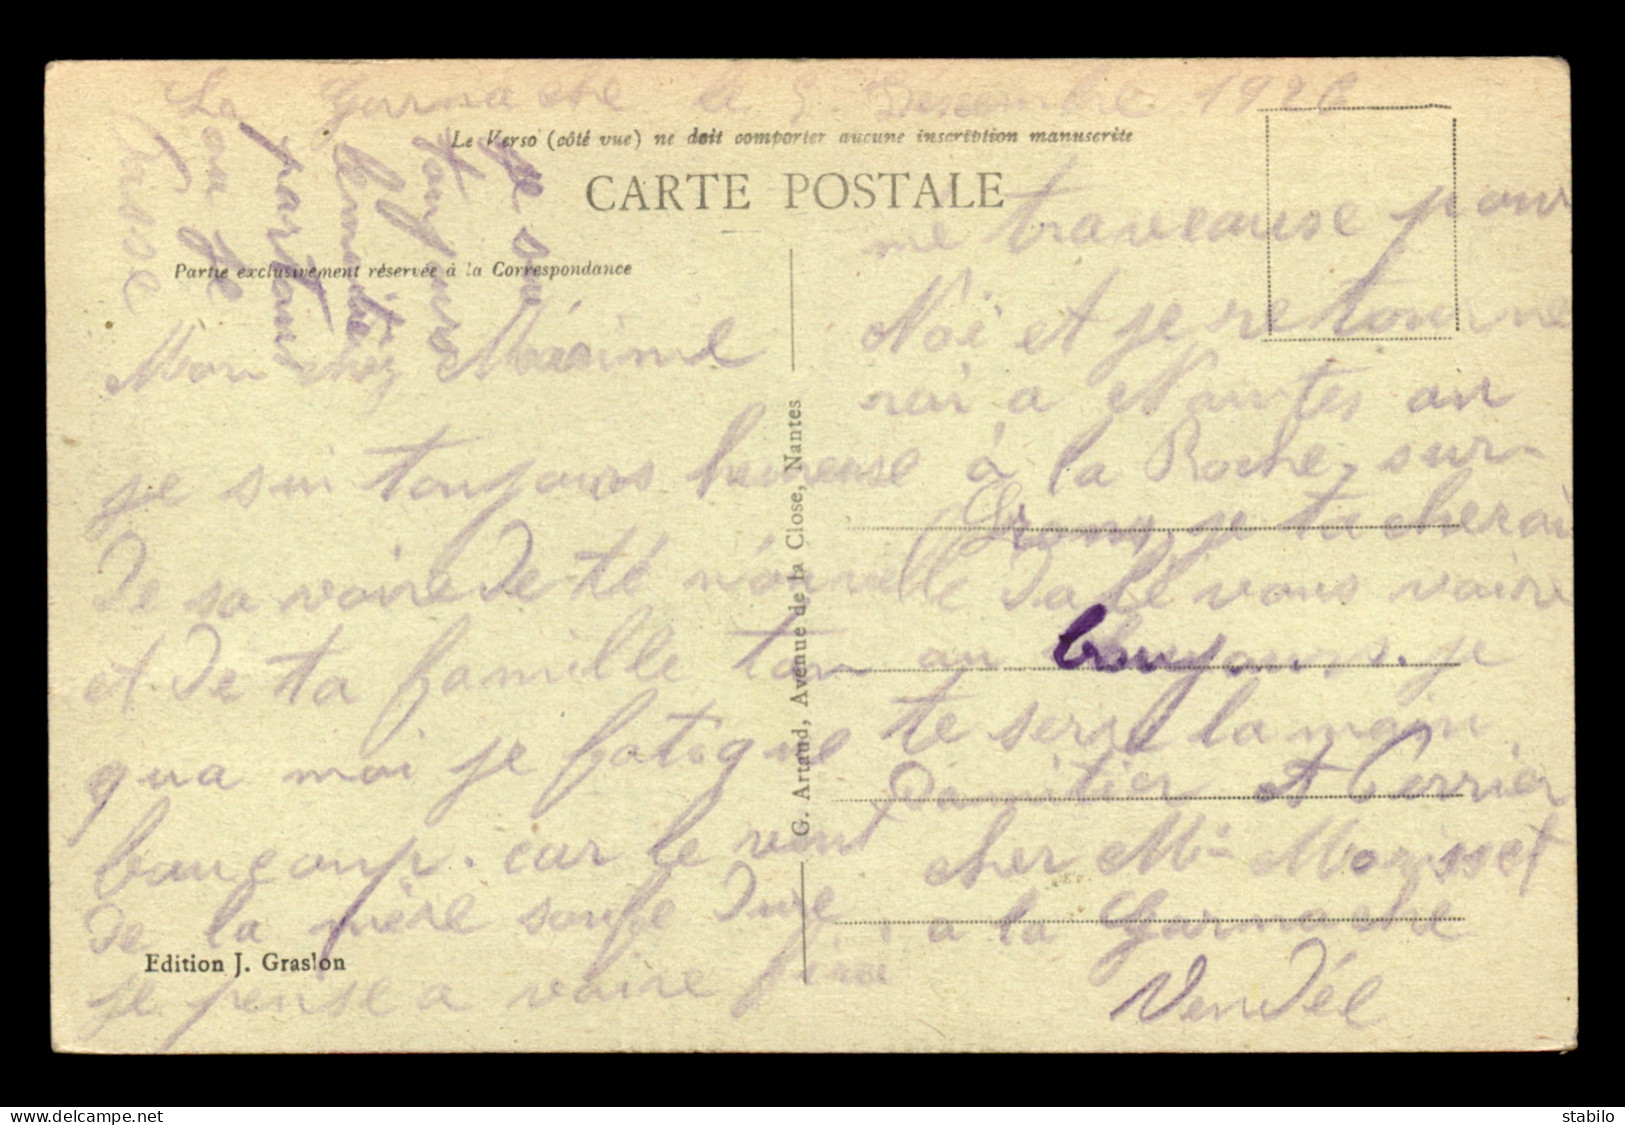 La Garnache le 5 Décembre 1926
Le Verso (côté vue) ne doit comporter aucune inscription manuscrite
CARTE POSTALE
Partie exclusivement réservée à la Correspondance
Mon cher Maxime
je sui toujours heureuse
de sa voire de té nouvelle
et de ta famille tan
qua moi je fatigue
baucoup. car le vent
de la mère soufe dure
je pense a voire
me traveause pour
Noë et je retourne
rai a Nantes ou
à la Roche-sur-
je tacherai
vous voire
au toujours. je
te serre la main
et Perrier
cher Mr Morisset
a la Garnache
Vendée
je sui
toujours
partan
ou je
passe
G. Artaud, Avenue de la Close, Nantes
Edition J. Graslon
stabilo